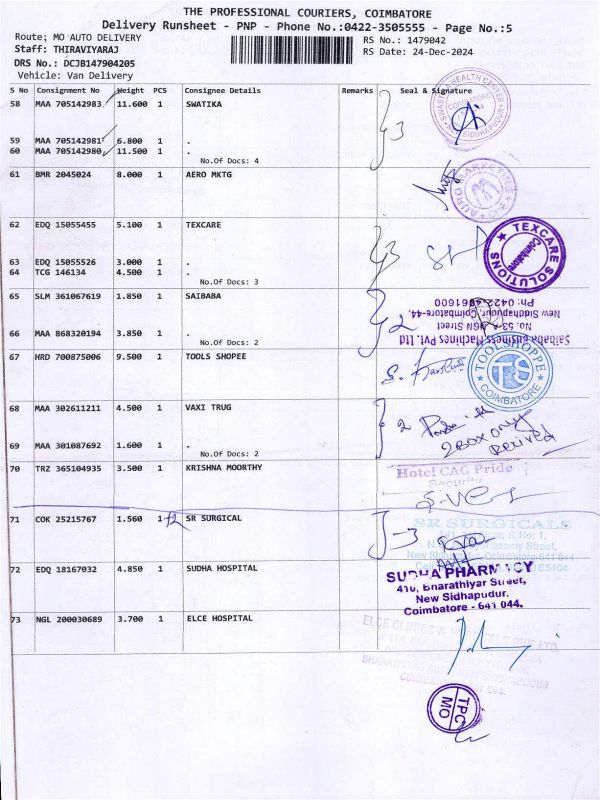 THE PROFESSIONAL COURIERS, COIMBATORE
Delivery Runsheet - PNP - Phone No.:0422-3505555 - Page No.:5
Route; MO AUTO DELIVERY
Staff: THIRAVIYARAJ
RS No.: 1479042
RS Date: 24-Dec-2024
DRS No.: DCJB147904205
Vehicle: Van Delivery
S No Consignment No Weight PCS Consignee Details Remarks Seal & Signature
58 MAA 705142983 11.600 1 SWATIKA
59 MAA 705142981 6.800 1 .
60 MAA 705142980 11.500 1 .
No.Of Docs: 4
3
61 BMR 2045024 8.000 1 AERO MKTG
62 EDQ 15055455 5.100 1 TEXCARE
63 EDQ 15055526 3.000 1 .
64 TCG 146134 4.500 1 .
No.Of Docs: 3
3
TEXCARE SOLUTIONS
Coimbatore
65 SLM 361067619 1.850 1 SAIBABA
66 MAA 868320194 3.850 1 .
No.Of Docs: 2
2
Saibaba Business Machines Pvt. Ltd
New Siddhapudur, Coimbatore-44.
67 HRD 700875006 9.500 1 TOOLS SHOPEE
TOOLSHOPPE
TS
COIMBATORE
68 MAA 302611211 4.500 1 VAXI TRUG
69 MAA 301087692 1.600 1 .
No.Of Docs: 2
2
2 BOX only
70 TRZ 365104935 3.500 1 KRISHNA MOORTHY
Hotel CAG Pride
Security
71 COK 25215767 1.560 1 +2 SR SURGICAL
-3
SR SURGICALS
72 EDQ 18167032 4.850 1 SUDHA HOSPITAL
SUDHA PHARMACY
410, Bharathiyar Street,
New Sidhapudur.
Coimbatore - 641 044.
73 NGL 200030689 3.700 1 ELCE HOSPITAL
TPC
MO